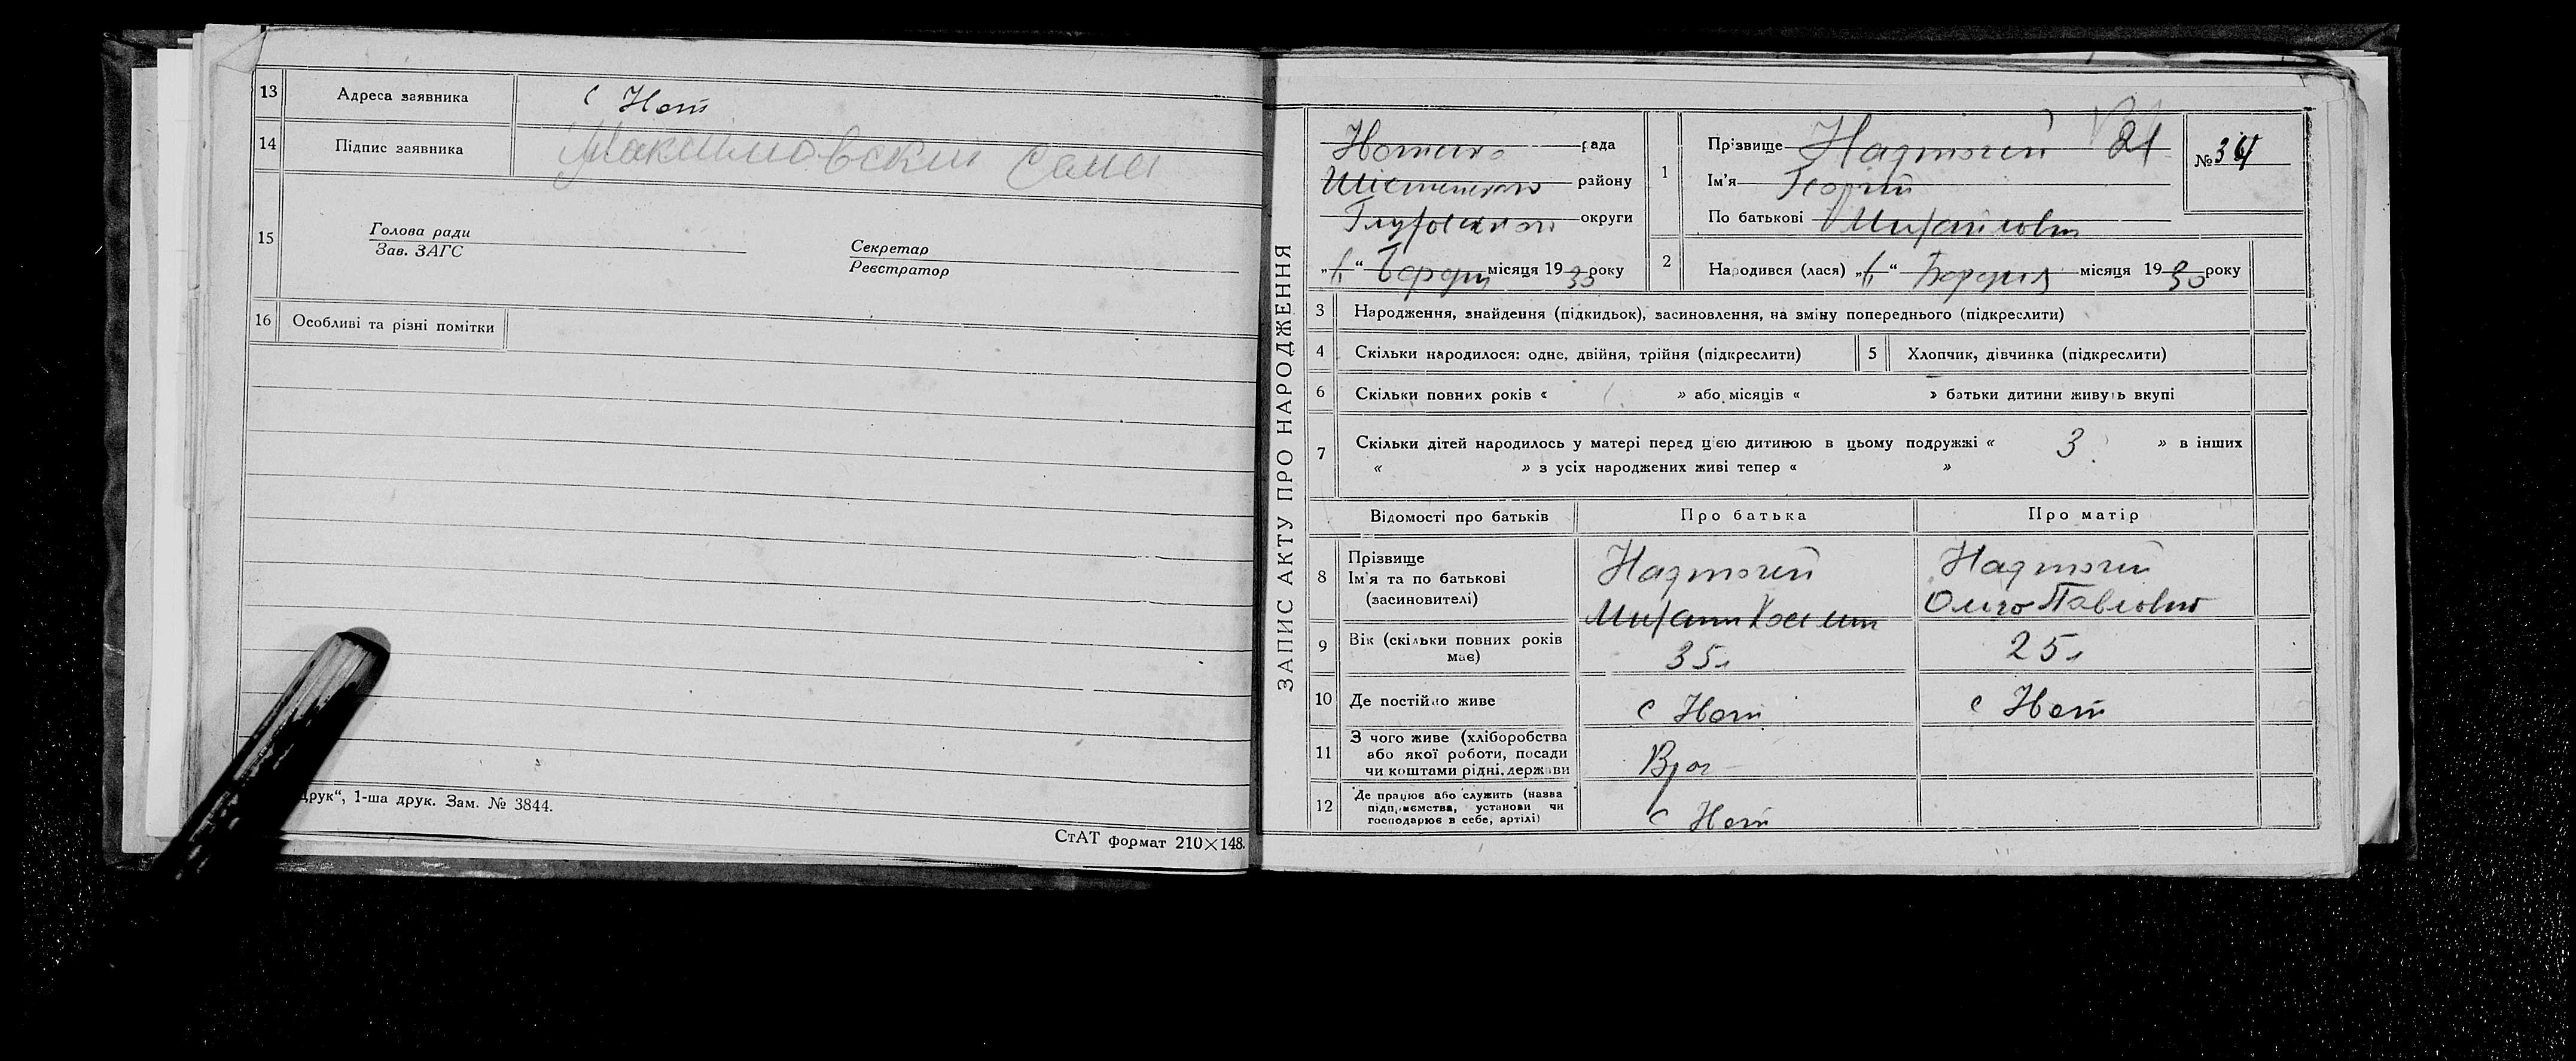 13 Адреса заявника с Нот
14 Підпис заявника Максимовский
15 Голова ради
Зав. ЗАГС
Секретар
Реєстратор
16 Особливі та різні помітки
Друк“, 1-ша друк. Зам. № 3844.
СтАТ формат 210×148.
ЗАПИС АКТУ ПРО НАРОДЖЕННЯ
рада
району
округи
місяця 1930 року
1 Прізвище Надточий 21
Ім'я Георгий
По батькові
№ 34
2 Народився (лася) „ “ місяця 1930 року
3 Народження, знайдення (підкидьок), засиновлення, на зміну попереднього (підкреслити)
4 Скільки народилося: одне, двійня, трійня (підкреслити) 5 Хлопчик, дівчинка (підкреслити)
6 Скільки повних років « » або місяців « » батьки дитини живуть вкупі
7 Скільки дітей народилось у матері перед цією дитиною в цьому подружжі « 3 » в інших
« » з усіх народжених живі тепер « »
Відомості про батьків Про батька Про матір
8 Прізвище
Ім'я та по батькові
(засновителі)
Надточий
Надточий
9 Вік (скільки повних років
має)
35 25
10 Де постійно живе с Нот с Нот
11 З чого живе (хліборобства
або якої роботи, посади
чи коштами рідні, держави
12 Де працює або служить (назва
підприємства, установи чи
господарює в себе, артілі)
с Нот